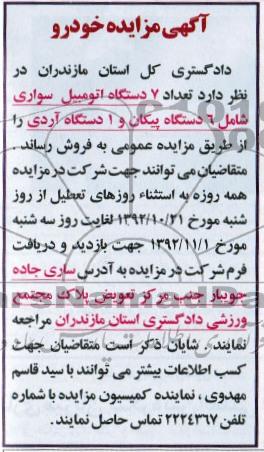 آگهی مزایده خودرو
دادگستری کل استان مازندران در
نظر دارد تعداد ۷ دستگاه اتومبیل سواری
شامل ۶ دستگاه پیکان و ۱ دستگاه آردی را
از طریق مزایده عمومی به فروش رساند .
متقاضیان می توانند جهت شرکت در مزایده
همه روزه به استثناء روزهای تعطیل از روز
شنبه مورخ ۱۳۹۲/۱۰/۲۱ لغایت روز سه شنبه
مورخ ۱۳۹۲/۱۱/۱ جهت بازدید و دریافت
فرم شرکت در مزایده به آدرس ساری جاده
جویبار جنب مرکز تعویض پلاک مجتمع
ورزشی دادگستری استان مازندران مراجعه
نمایند . شایان ذکر است متقاضیان جهت
کسب اطلاعات بیشتر می توانند با سید قاسم
مهدوی ، نماینده کمیسیون مزایده با شماره
تلفن ۲۲۲۴۳۶۷ تماس حاصل نمایند.